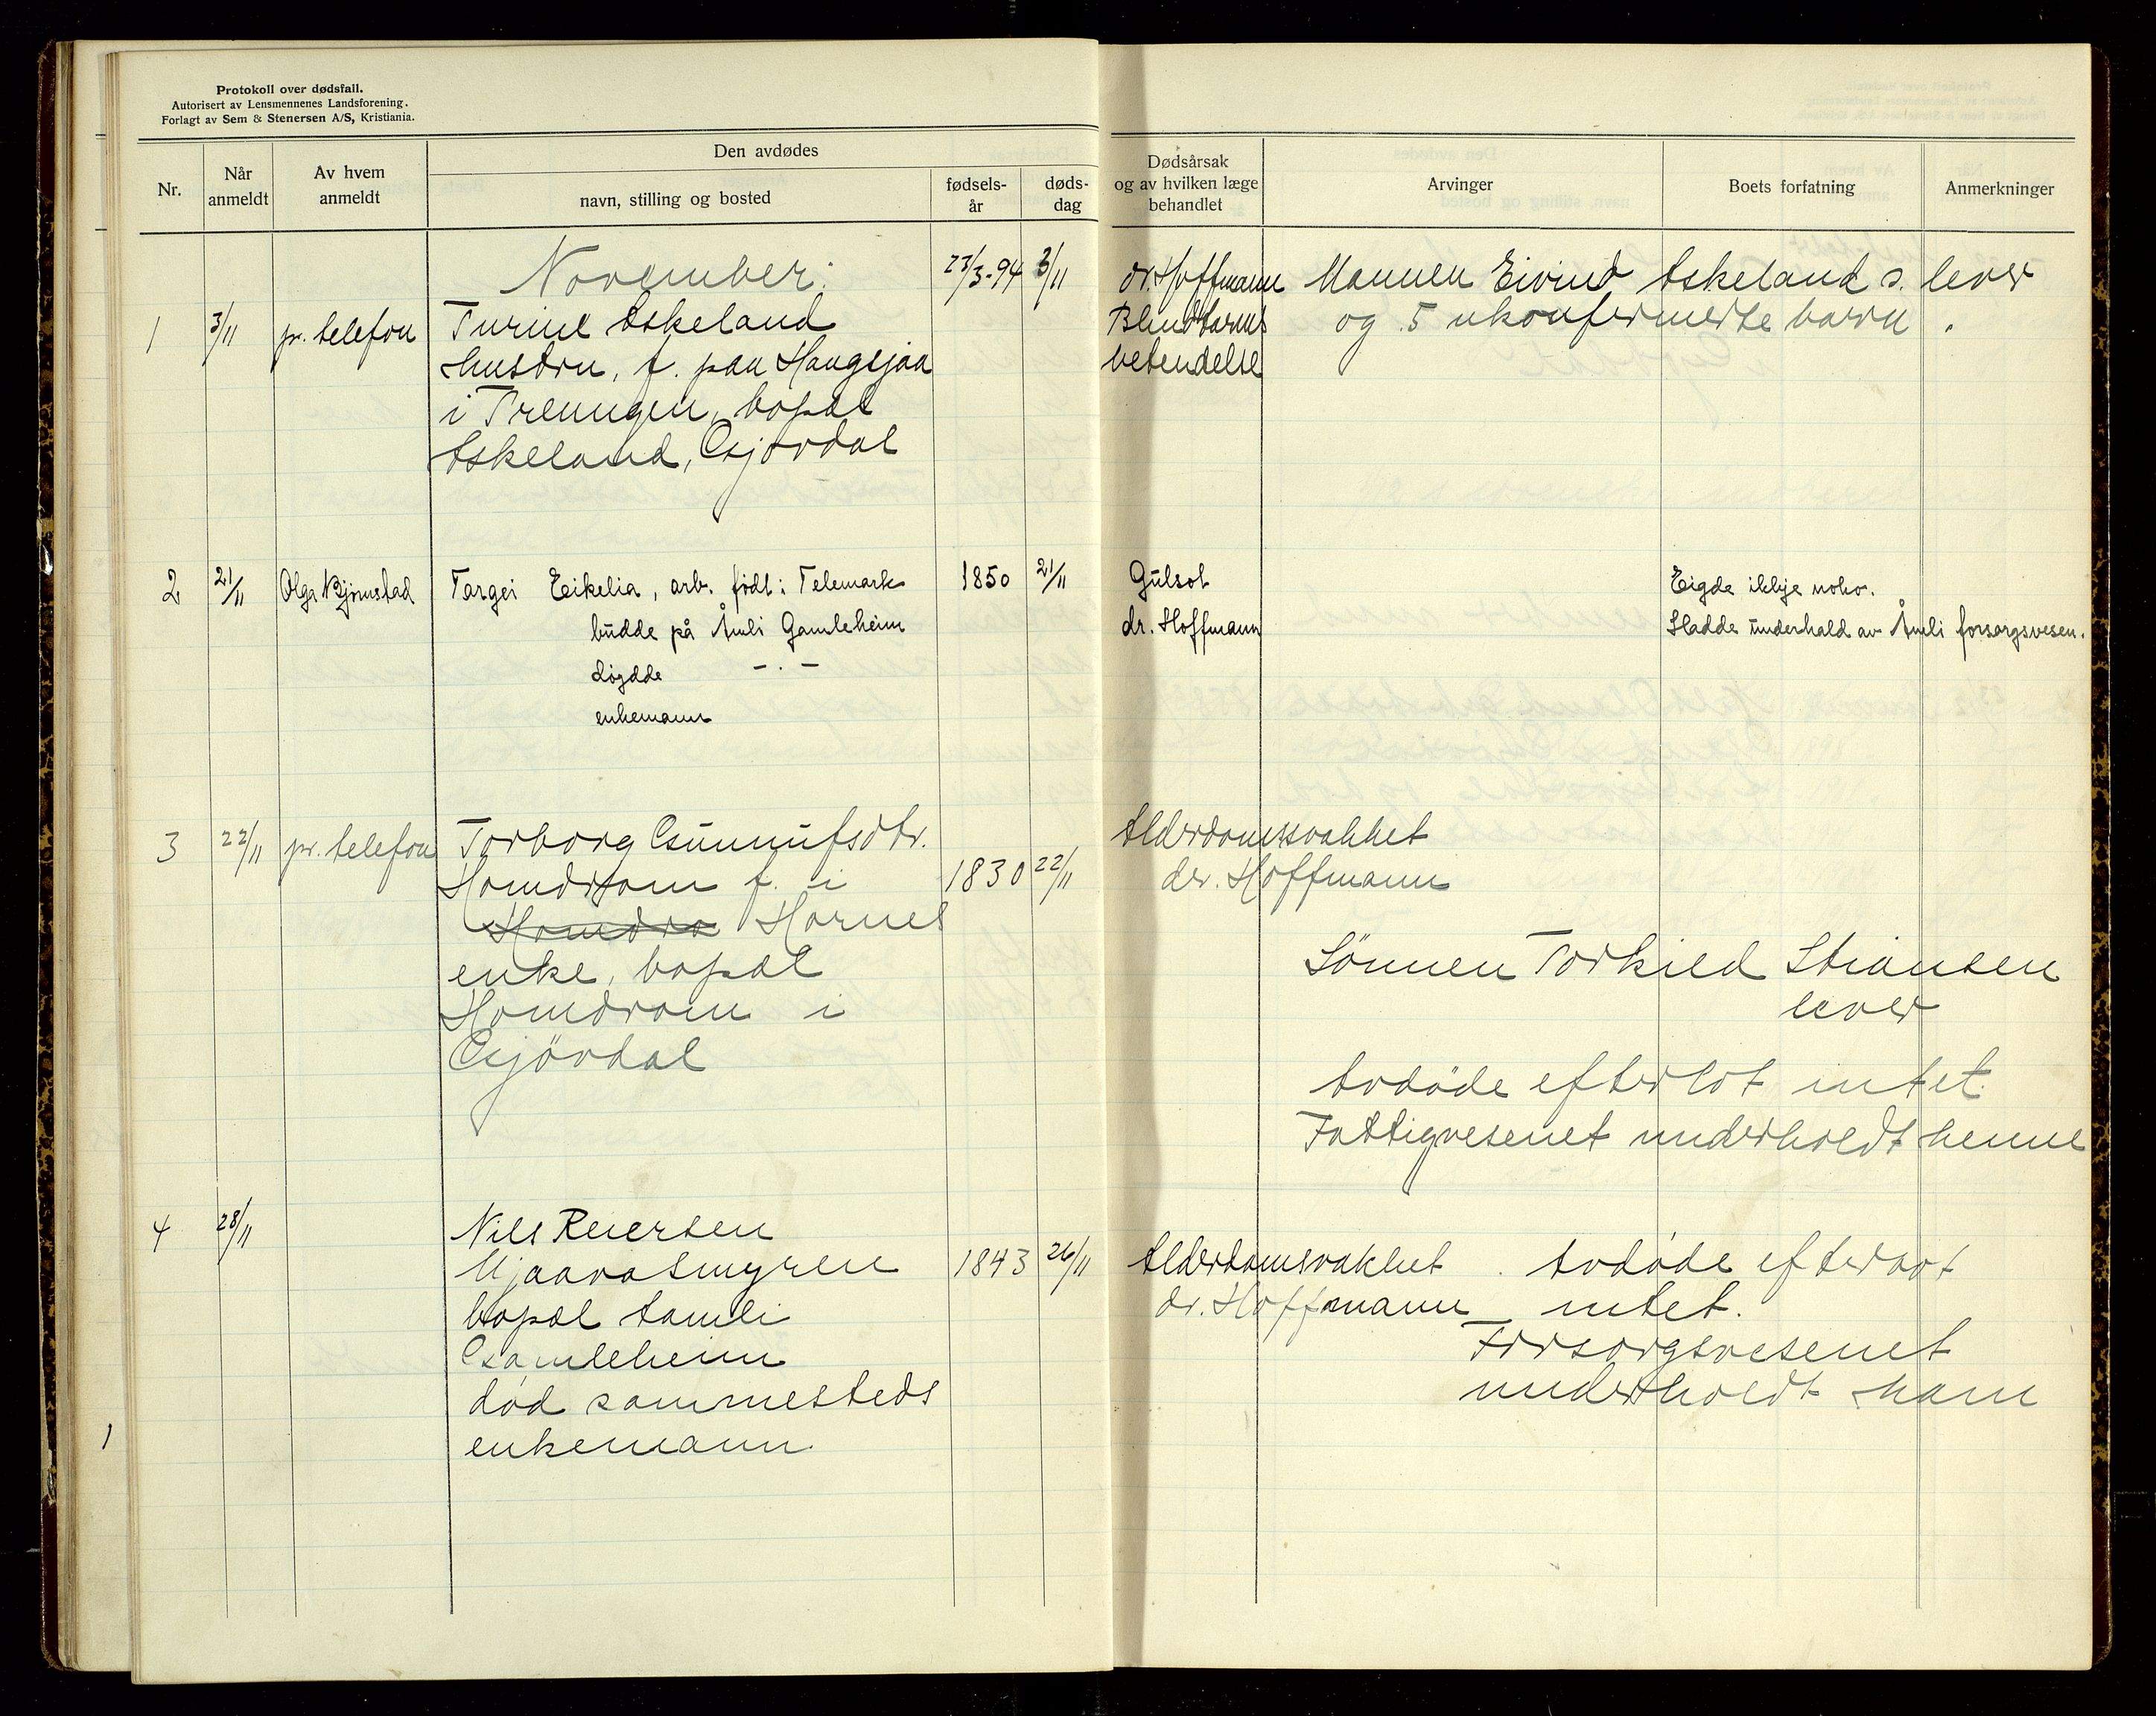 Protokoll over dødsfall.
Autorisert av Lensmennenes Landsforening.
Forlagt av Sem & Stenersen A/S, Kristiania.
Nr.
Når anmeldt
Av hvem anmeldt
Den avdødes
navn, stilling og bosted
fødsels-år
døds-dag
Dødsårsak og av hvilken læge behandlet
Arvinger
Boets forfatning
Anmerkninger
November:
1 3/11 pr. telefon
Turine Askeland
hustru, f. paa Haugsjaa
i Treungen, bopæl
Askeland, Gjøvdal
23/3-94 3/11
dr. Hoffmann
Blindtarms
betendelse
Mannen Eivind Askeland s. lever
og 5 ukonfirmerte barn.
2 21/11 Olga Bjørnstad
Targei Eikelia, arb. født i Telemark
budde på Åmli Gamleheim
døydde — . —
enkemann
1850 21/11
Gulsot
dr. Hoffmann
Eigde ikkje noko.
Hadde underhald av Åmli forsorgsvesen.
3 22/11 pr. telefon
Torborg Gunnufsdtr.
Homdrom f. i
Homdro Hornes
enke, bopæl
Homdrom i
Gjövdal
1830 22/11
Alderdomssvakhet
dr. Hoffmann
Sönnen Torkild Stiansen
lever
Avdöde efterlot intet.
Fattigvesenet underholdt henne
4 28/11
Nils Reiersen
Mjaavasmyren
bopæl Aamli
Gamleheim
död sammesteds
enkemann.
1843 26/11
Alderdomsvakhet
dr. Hoffmann
Avdöde efterlot
intet.
Forsorgsvesenet
underholdt ham
1